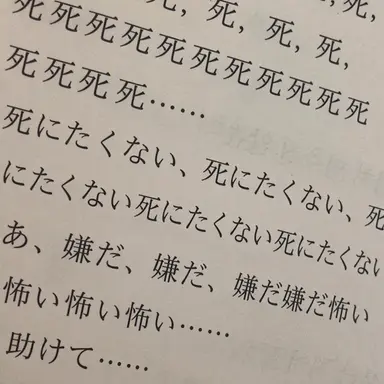 死，死，死，死，
死死死死死死死死死死死
死死死死……
死にたくない、死にたくない、死
にたくない死にたくない死にたくない
あ、嫌だ、嫌だ、嫌だ嫌だ怖い
怖い怖い怖い……
助けて……